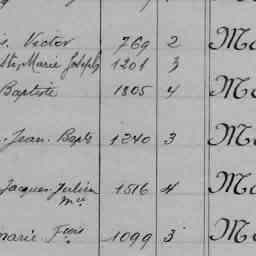 Victor 769 2 Ma
Marie Joseph 1201 3
Baptiste 1805 4 Ma
Jean. Bapte 1240 3 Ma
Jacques Julien 1516 4 Ma
Mie
marie Fcois 1099 3 Ma